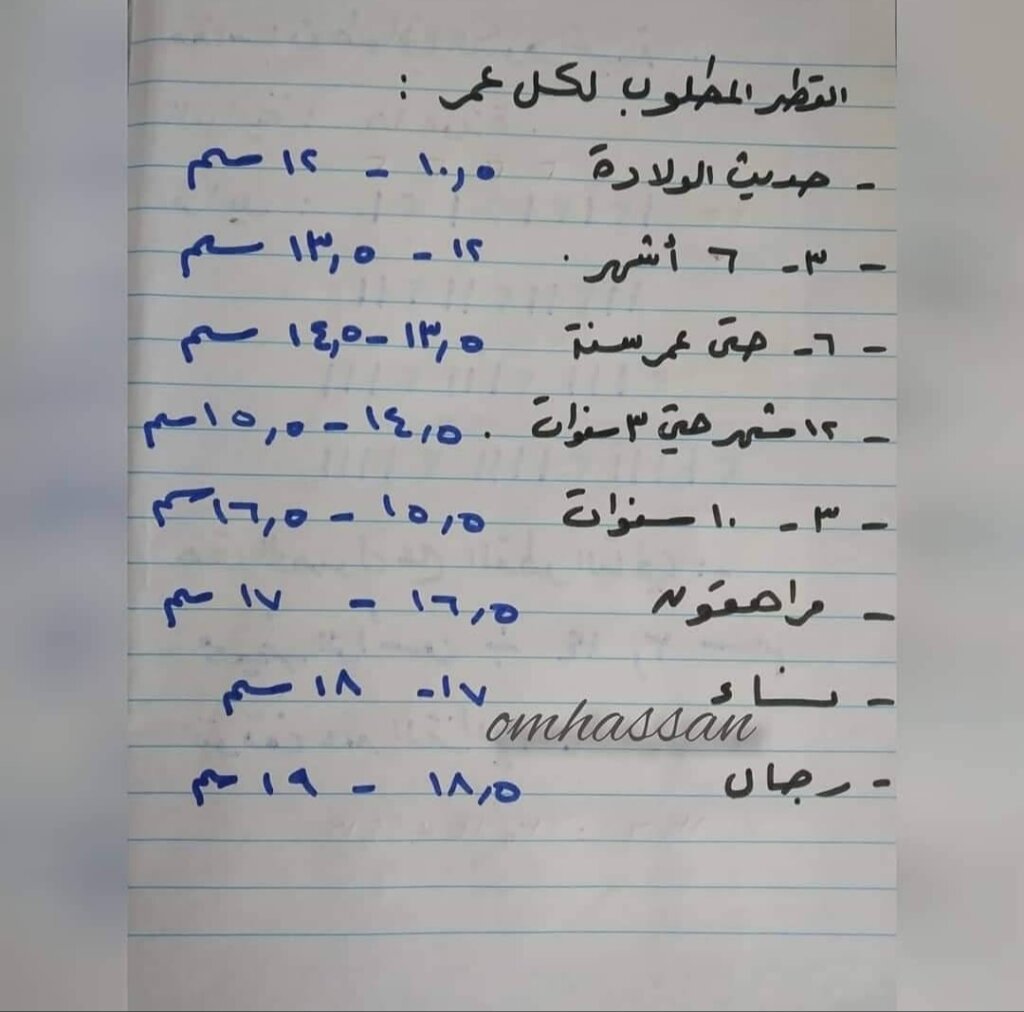 القطر المطلوب لكل عمر :
- حديث الولادة ١٠,٥ - ١٢ سم
- ٣ - ٦ أشهر . ١٢ - ١٣,٥ سم
- ٦ - حتى عمر سنة ١٣,٥ - ١٤,٥ سم
- ١٢ شهر حتي ٣ سنوات . ١٤,٥ - ١٥,٥ سم
- ٣ - ١٠ سنوات ١٥,٥ - ١٦,٥ سم
- مراهقون ١٦,٥ - ١٧ سم
- نساء ١٧ - ١٨ سم
omhassan
- رجال ١٨,٥ - ١٩ سم